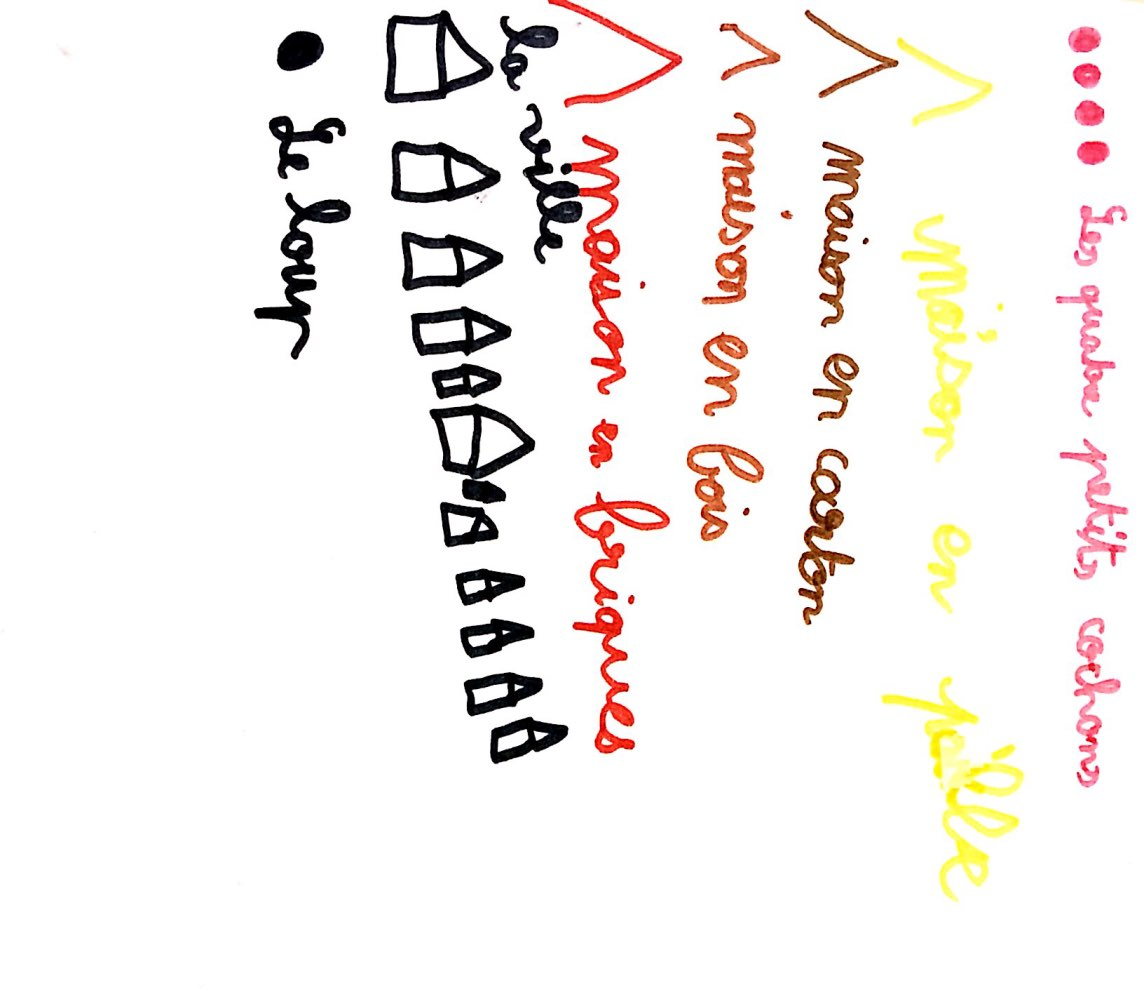 Les quatre petits cochons
Maison en pille
Maison en carton
Maison en bois
Maison en briques
la ville
Le loup